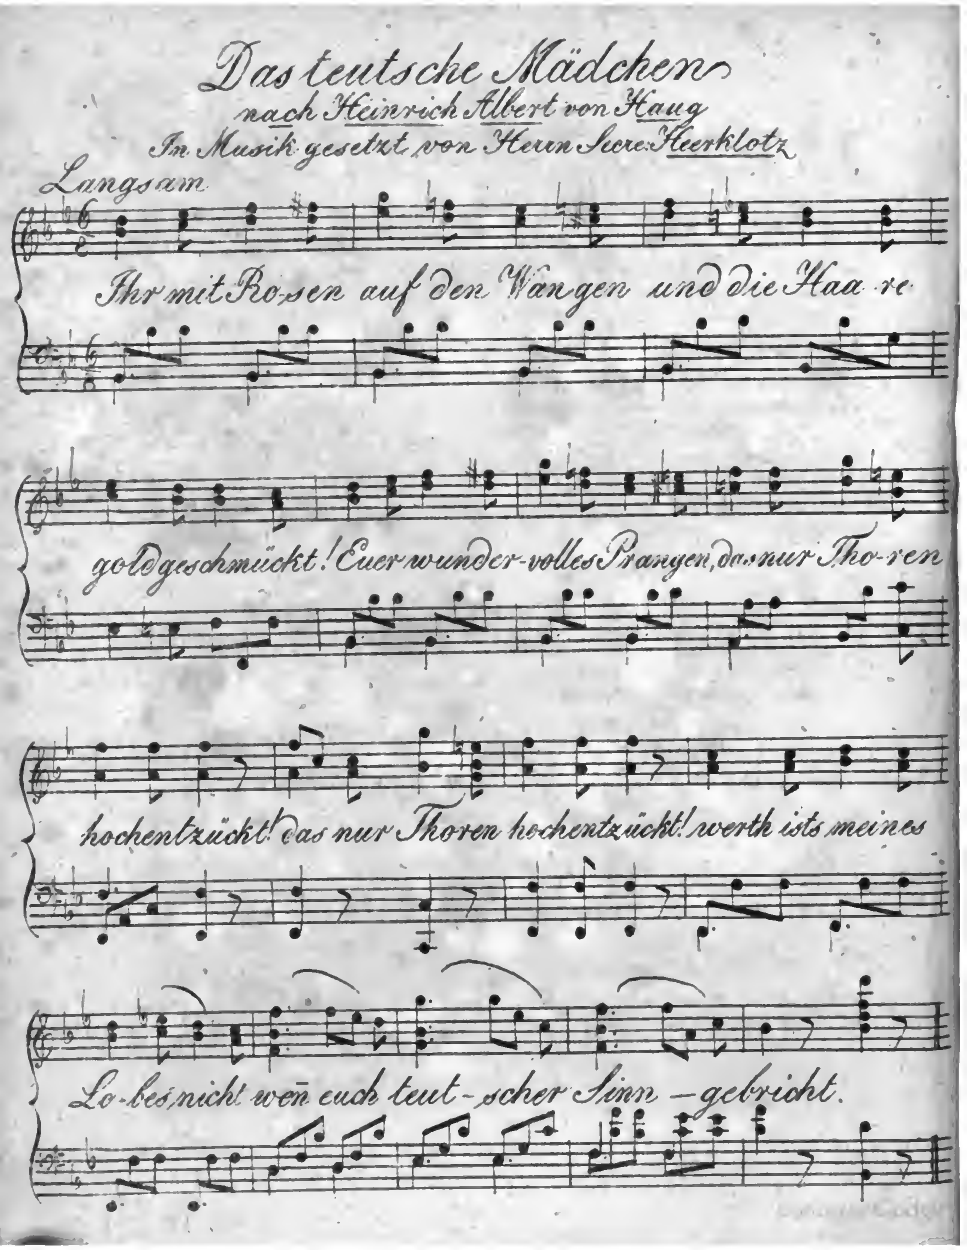 Das teutsche Mädchen
nach Heinrich Albert von Haug
In Musik gesetzt von Herrn Secre: Heerklotz
Langsam
6
8
Ihr mit Ro-sen auf den Wangen und die Haa-re
6
8
goldgeschmückt! Euer wunder-volles Prangen, das nur Tho-ren
hochentzückt! das nur Thoren hochentzückt! werth ists meines
Lo-bes nicht wen̄ euch teut-scher Sinn – gebricht.